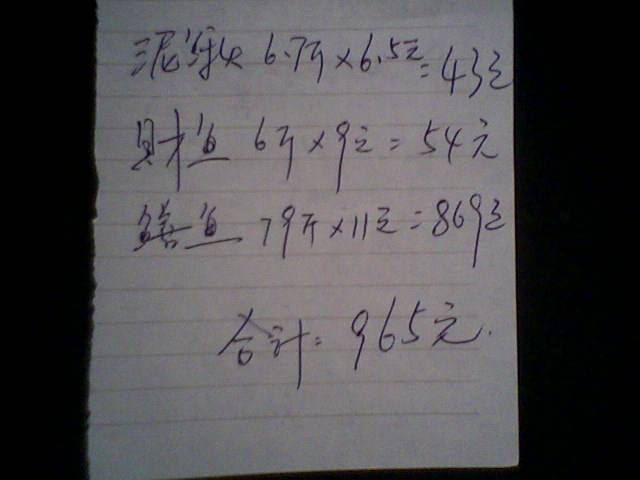 泥鳅 6.7斤×6.5元=43元
财鱼 6斤×9元=54元
鳝鱼 79斤×11元=869元
合计:965元.